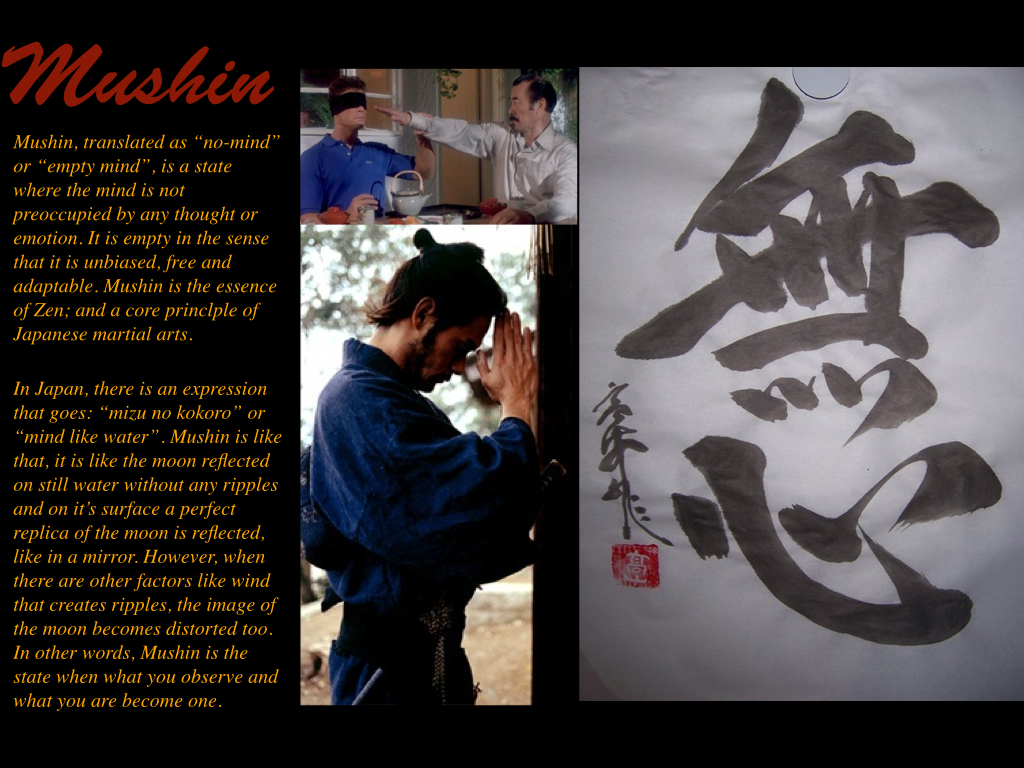 Mushin
Mushin, translated as “no-mind”
or “empty mind”, is a state
where the mind is not
preoccupied by any thought or
emotion. It is empty in the sense
that it is unbiased, free and
adaptable. Mushin is the essence
of Zen; and a core princlple of
Japanese martial arts.
In Japan, there is an expression
that goes: “mizu no kokoro” or
“mind like water”. Mushin is like
that, it is like the moon reflected
on still water without any ripples
and on it’s surface a perfect
replica of the moon is reflected,
like in a mirror. However, when
there are other factors like wind
that creates ripples, the image of
the moon becomes distorted too.
In other words, Mushin is the
state when what you observe and
what you are become one.
無
心